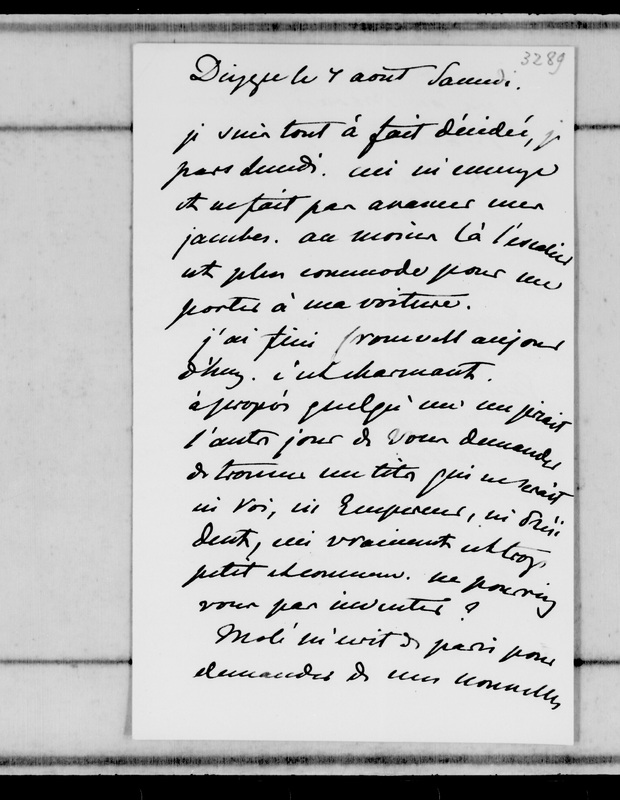 3289
Dieppe le 7 août Samedi.
je suis tout à fait décidée, je
pars lundi. ici m'ennuye
et ne fait pas avancer mes
jambes. au moins là l'escalier
est plus commode pour me
porter à ma voiture.
j'ai fini Cromwell aujour
d'huy. c'est charmant.
à propos quelqu'un me priait
l'autre jour de vous demander
de trouver un titre qui ne serait
ni roi, ni Empereur, ni Prési
dent, vraiment est trop
petit et commun. ne pourriez
vous pas inventer ?
Molé m'écrit de paris pour
demander de mes nouvelles